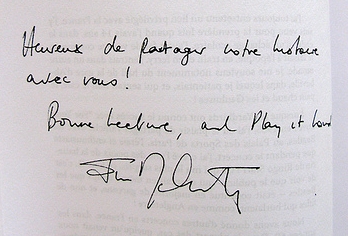 Heureux de partager notre histoire
avec vous!
Bonne lecture, and Play it Loud